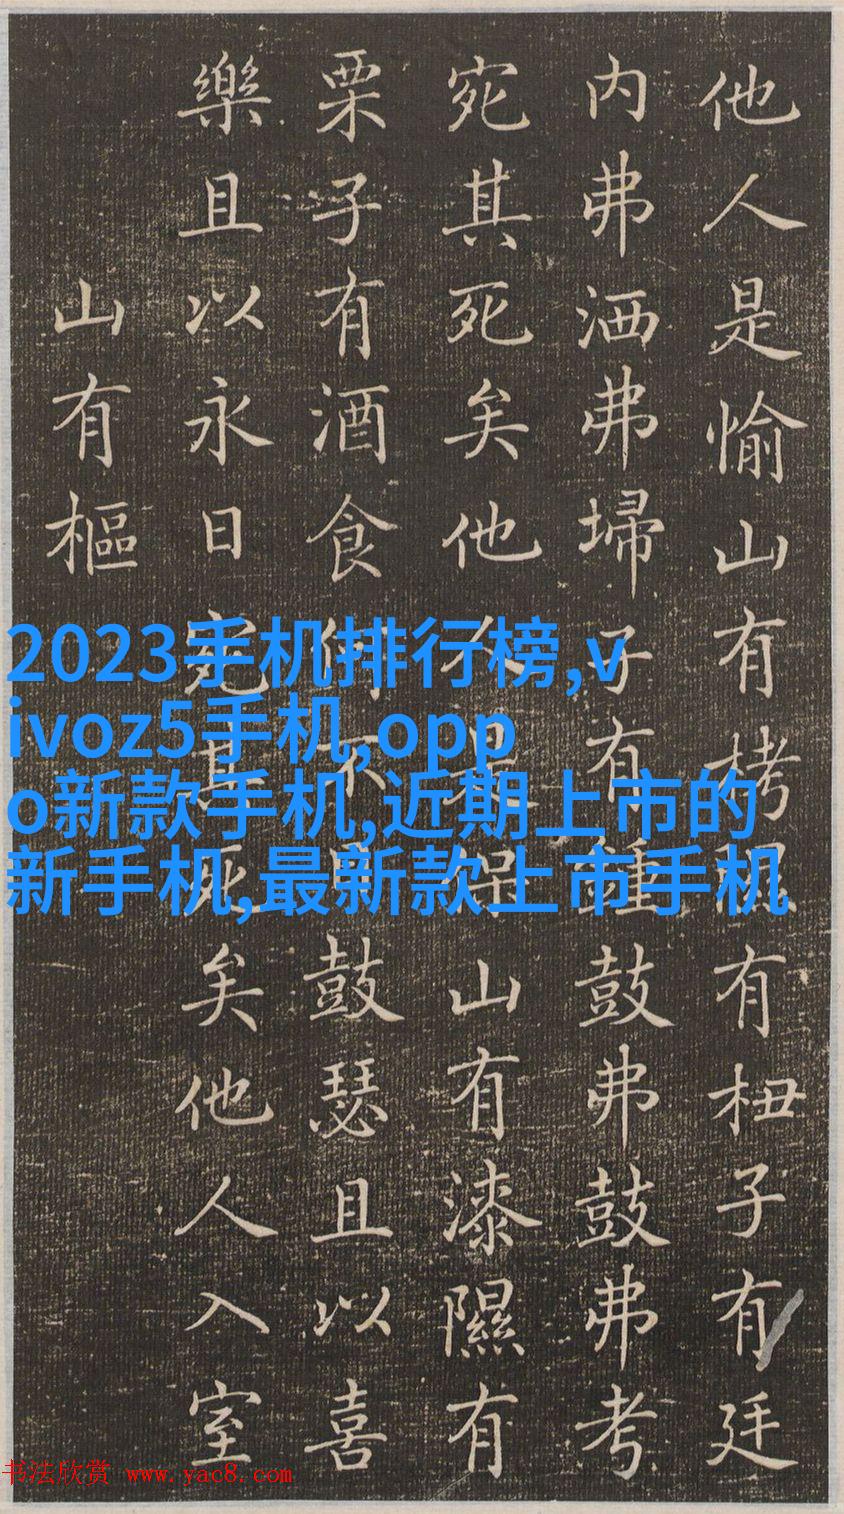 他人是愉山有栲隰有杻子有廷
内弗洒弗埽子有鍾鼓弗鼓弗考
宛其死矣他人是保山有漆隰有
栗子有酒食何不日鼓瑟且以喜
樂且以永日宛其死矣他人入室
山有樞
2023手机排行榜,v
ivoz5手机,opp
o新款手机,近期上市的
新手机,最新款上市手机
书法欣赏 www.yac8.com